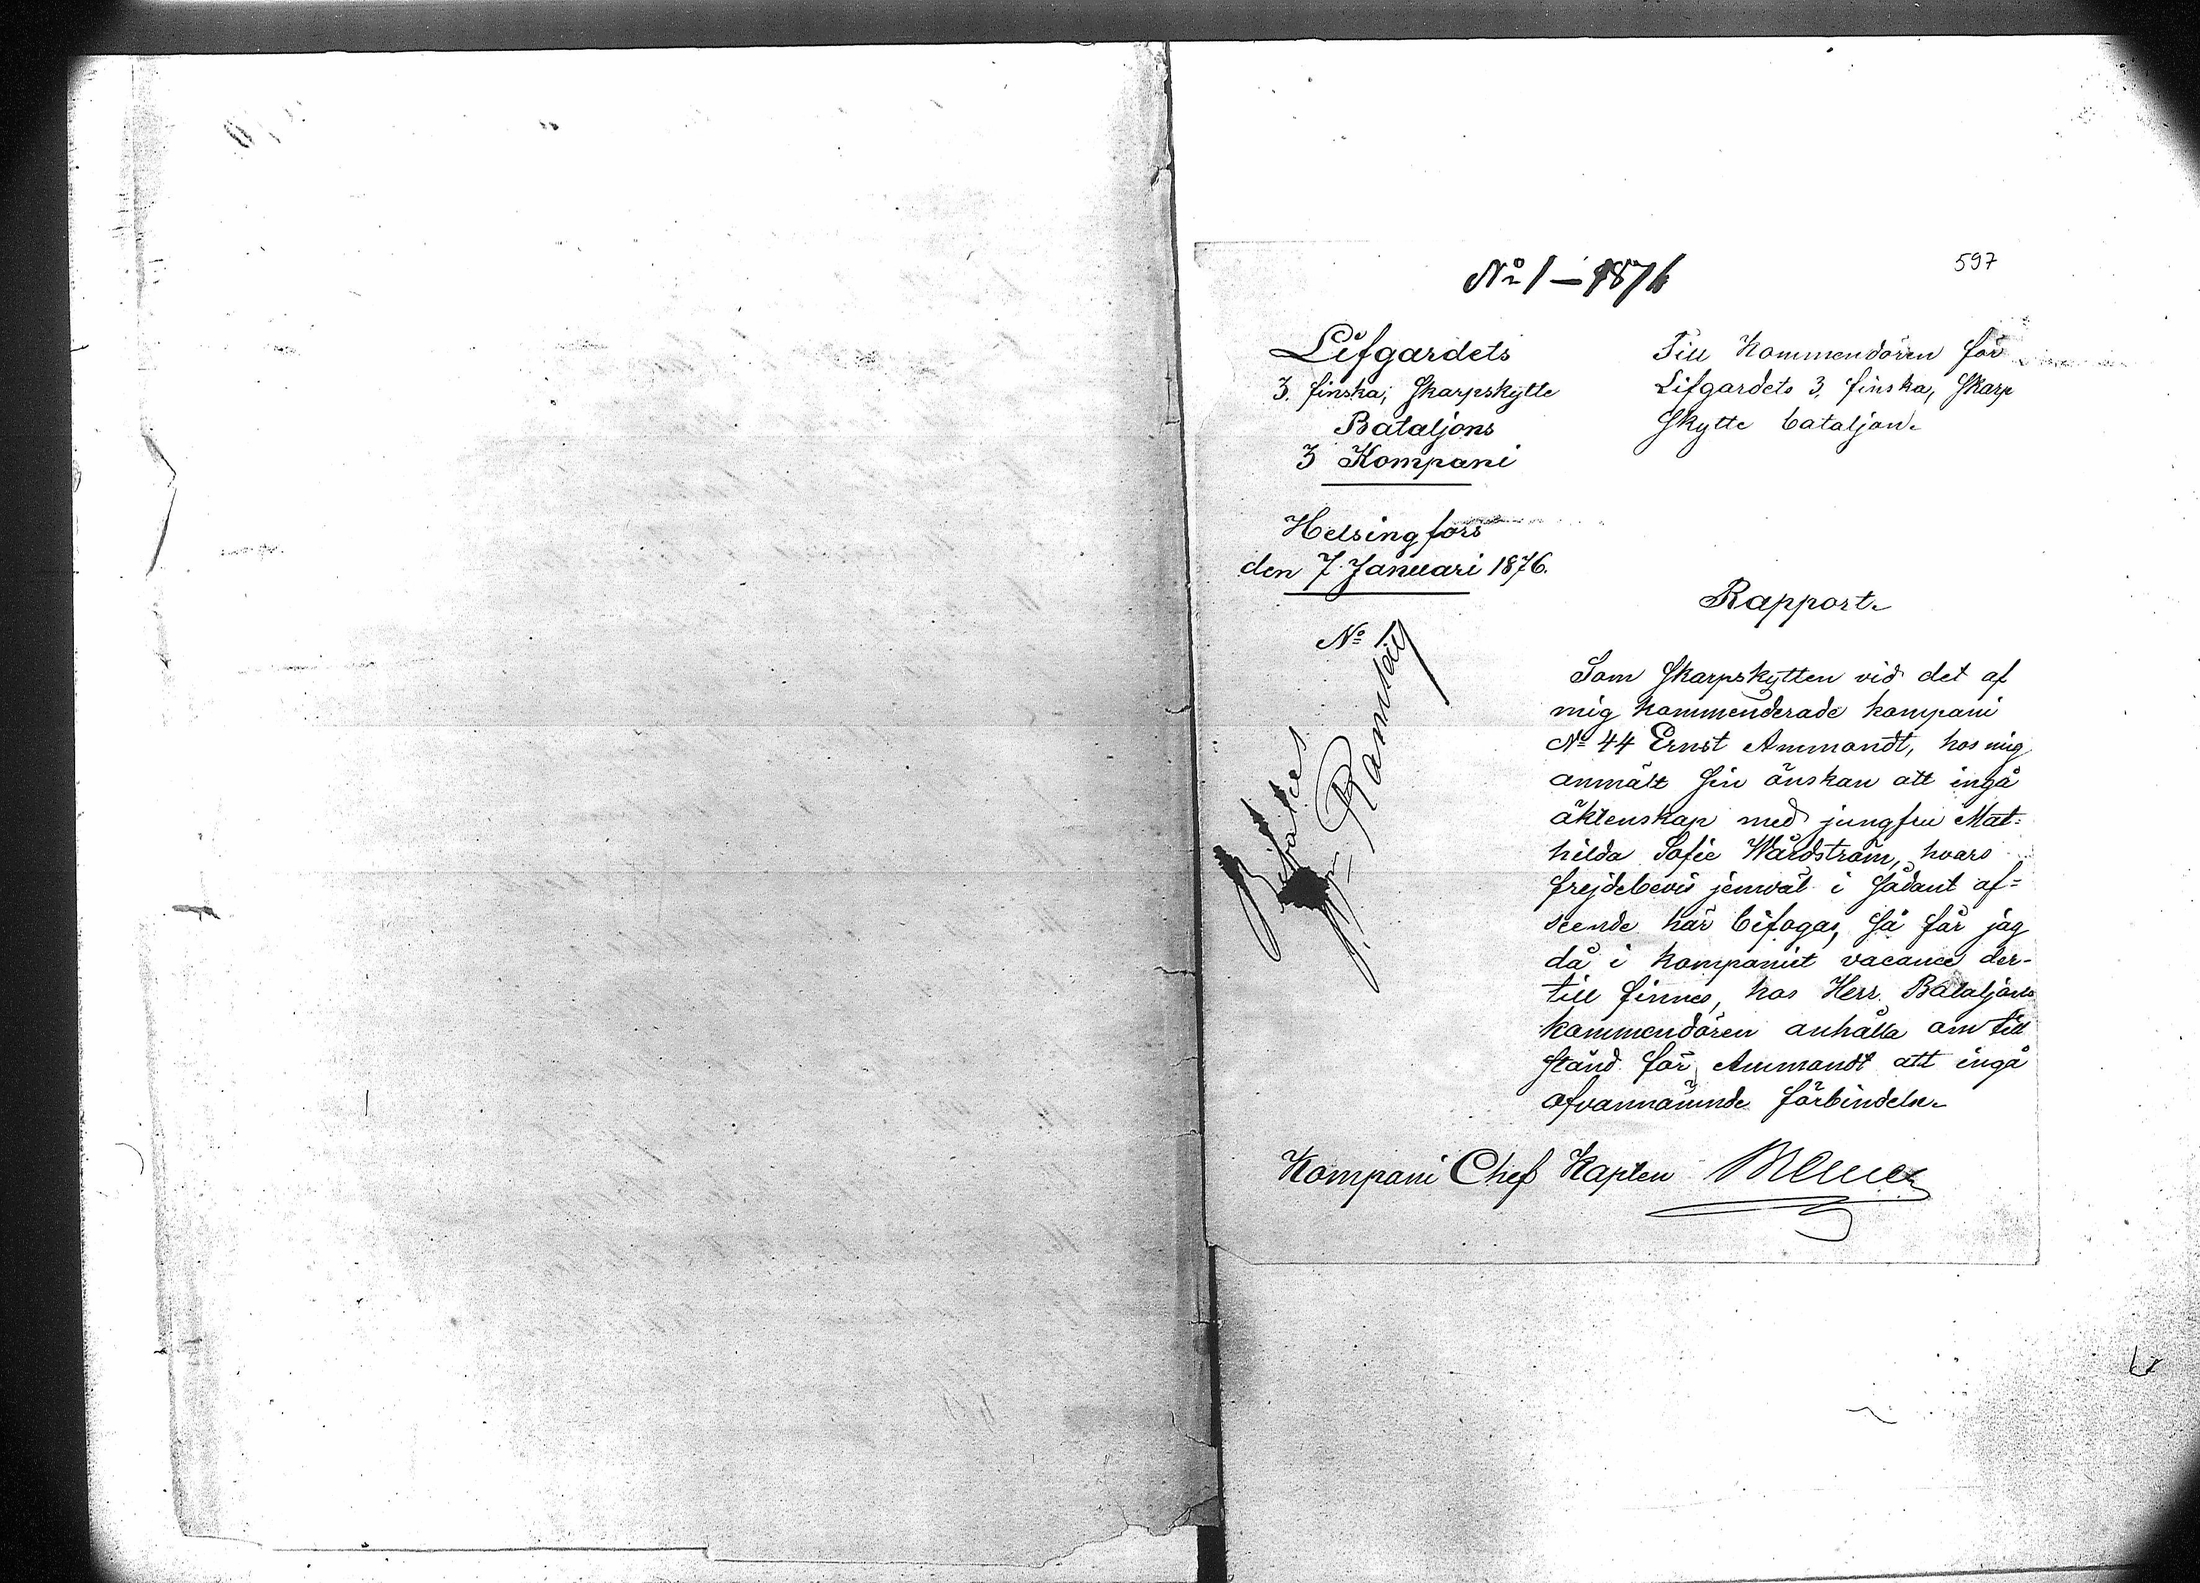 597
No 1 – 1876
Lifgardets
3. finska, Skarpskytte
Bataljons
3 Kompani
Helsingfors
den 7. Januari 1876.
No 1
Till Kommendören för
Lifgardets 3. finska, Skarp
Skytte bataljon.
Rapport.
Som Skarpskytten vid det af
mig kommenderade kompani
No 44 Ernst Ammondt, hos mig
anmält sin önskan att ingå
äktenskap med jungfru Mat-
hilda Sofie Wårdström, hvars
frejdebevis jemväl i sådant af-
seende här bifogas, så får jag
då i kompaniet vacance der-
till finnes, hos Herr Bataljons
kommendören anhålla om till
stånd för Ammondt att ingå
ofvannämnde förbindelse.
Bifalles
Ramsay
Kompani Chef Kapten